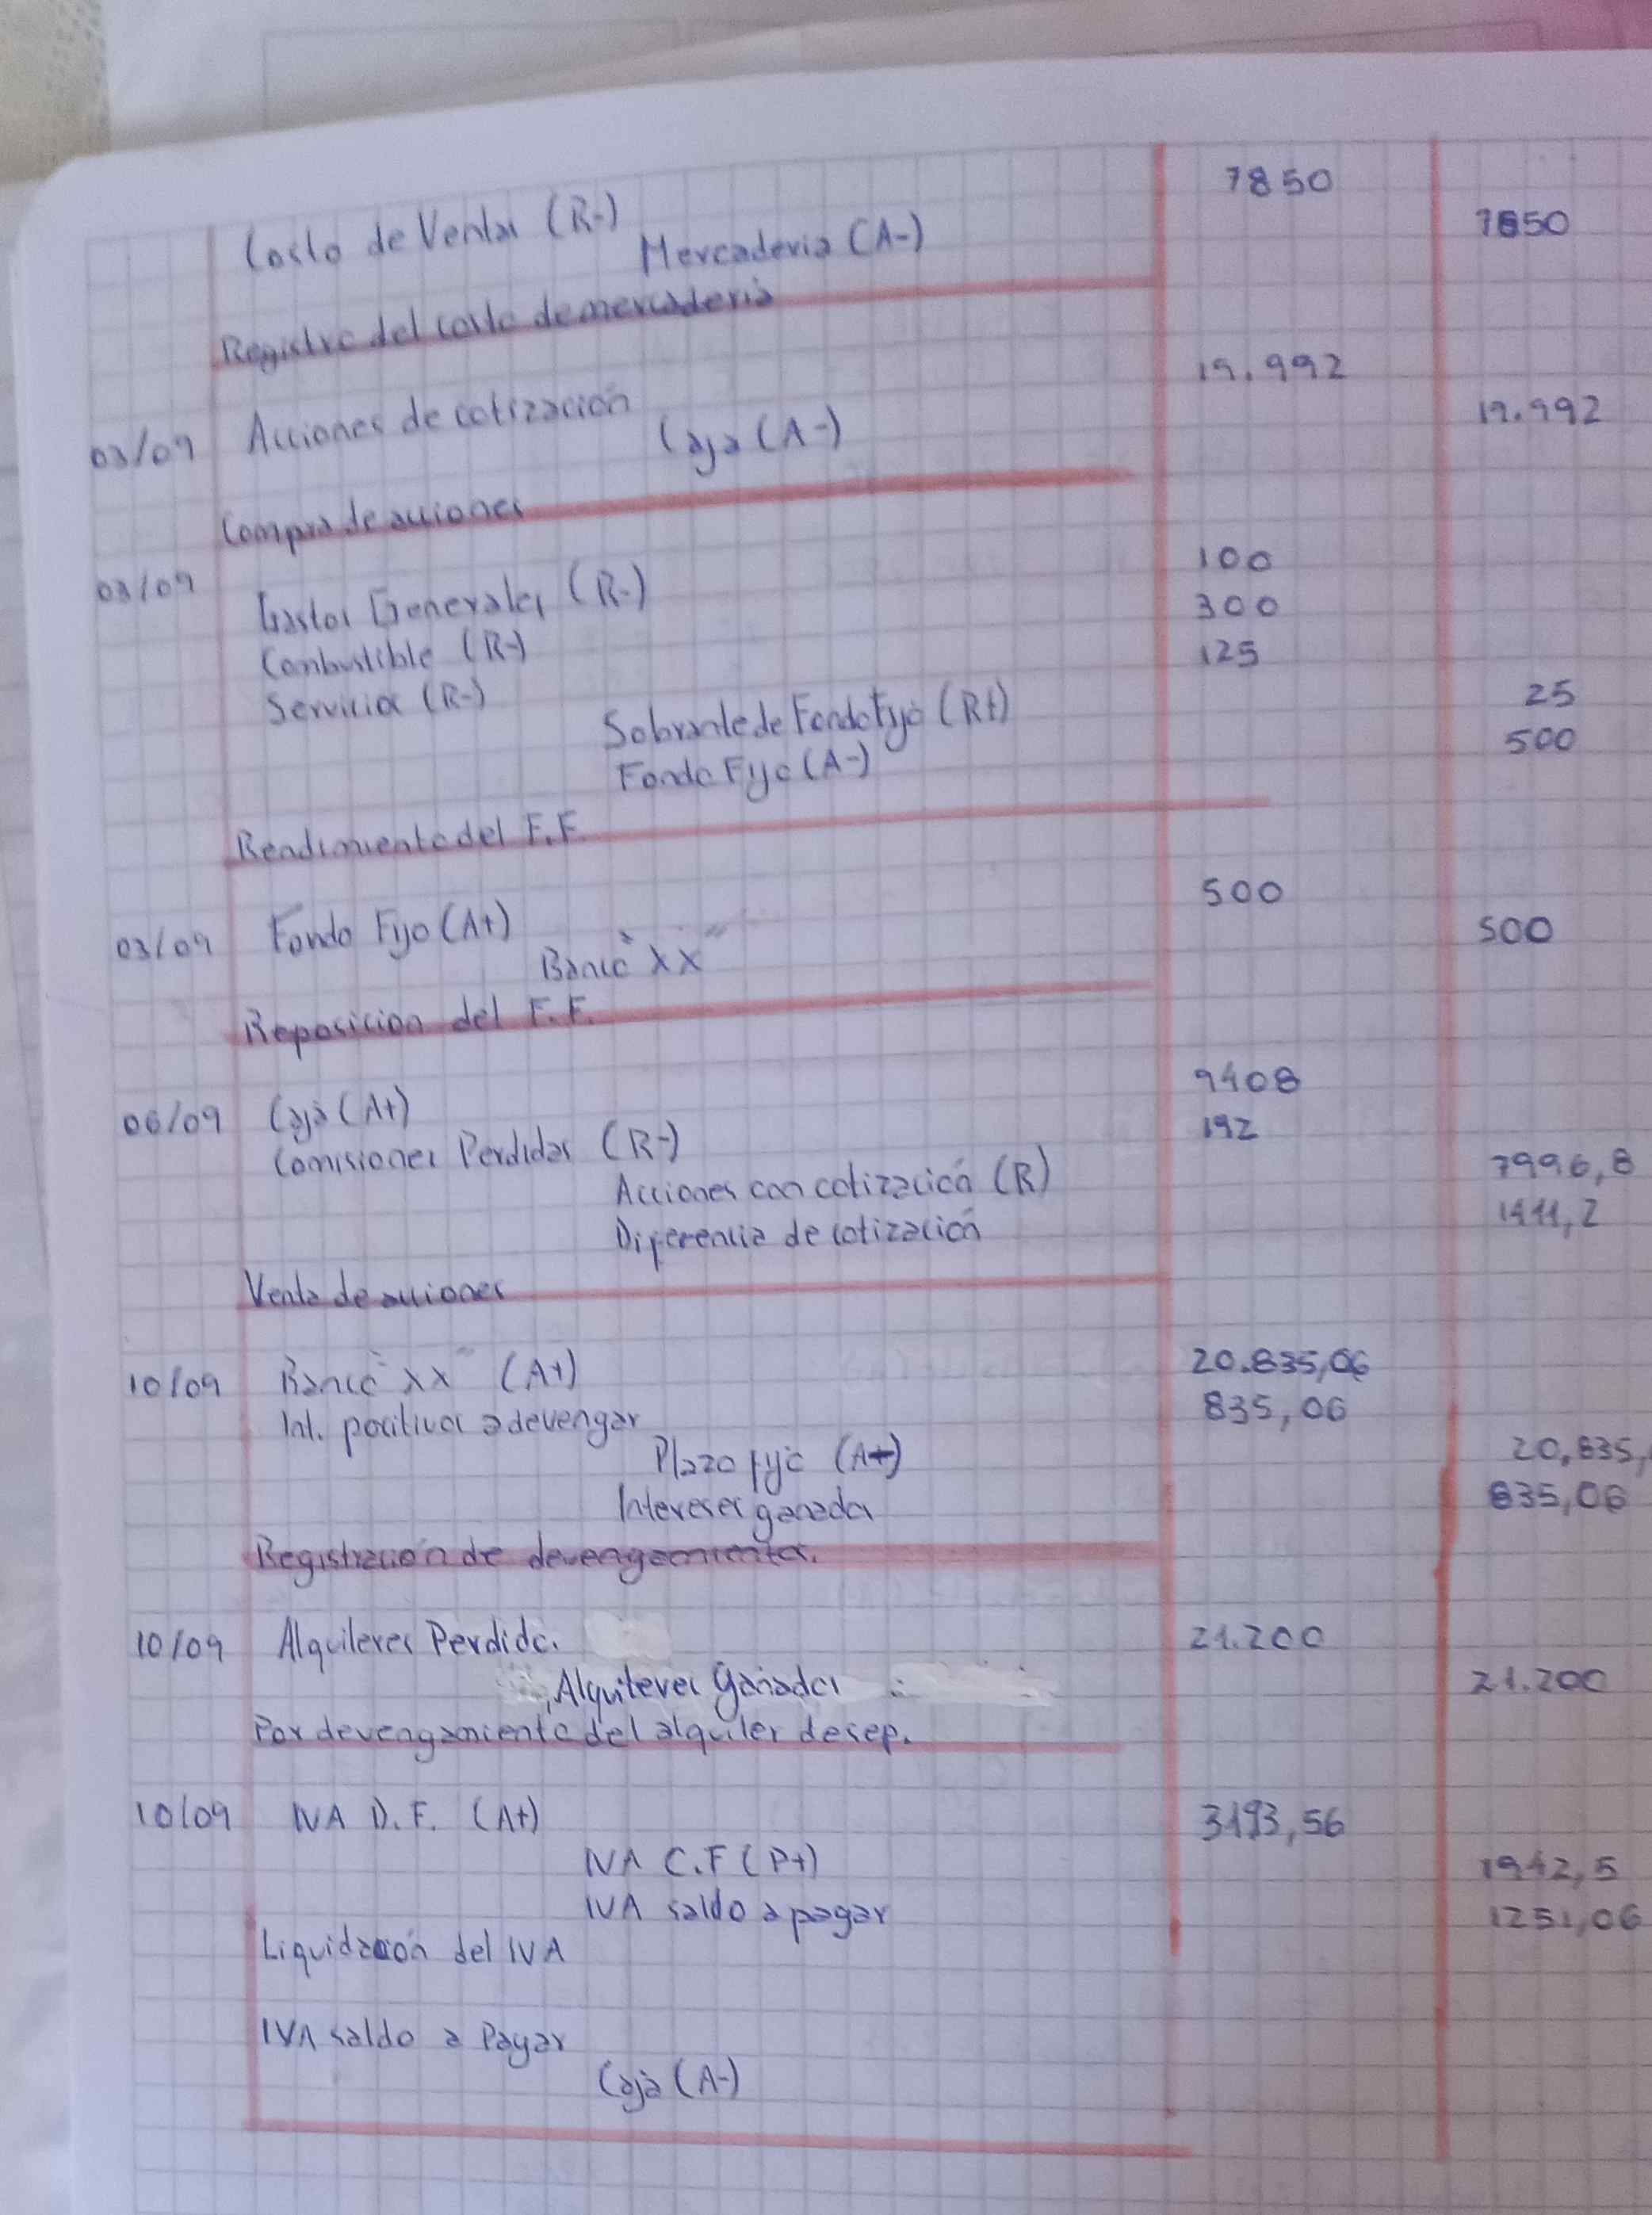 Costo de Ventas (R-) 7850
Mercaderia (A-) 7850
Registro del costo de mercaderia
03/09 Acciones de cotización 19.992
Caja (A-) 19.992
Compra de acciones
03/09 Gastos Generales (R-) 100
Combustible (R-) 300
Servicios (R-) 125
Sobrante de Fondo Fijo (R+) 25
Fondo Fijo (A-) 500
Rendimiento del F.F.
03/09 Fondo Fijo (A+) 500
Banco "XX" 500
Reposicion del F.F.
06/09 Caja (A+) 9408
Comisiones Perdidas (R-) 192
Acciones con cotización (R) 7996,8
Diferencia de cotización
Venta de acciones
10/09 Banco "XX" (A+) 20.835,06
Int. positivos a devengar 835,06
Plazo fijo (A+) 20,835,
Intereses ganados 835,06
Registración de devengamientos.
10/09 Alquileres Perdido. 21.200
Alquileres Ganados 21.200
Por devengamiento del alquiler de sep.
10/09 IVA D.F. (A+) 3193,56
IVA C.F (P+) 1942,5
IVA saldo a pagar 1251,06
Liquidación del IVA
IVA saldo a Pagar
Caja (A-)